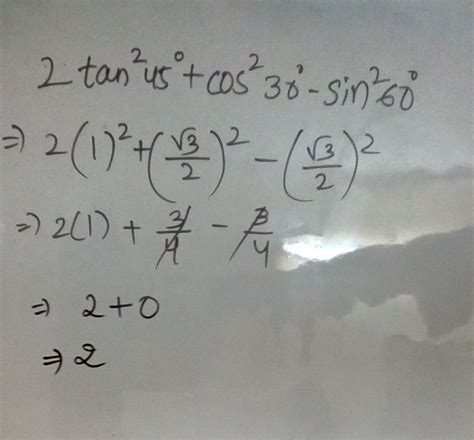 2 tan²45° + cos²30° - sin²60°
⇒ 2(1)² + (√3/2)² - (√3/2)²
⇒ 2(1) + 3/4 - 3/4
⇒ 2+0
⇒ 2